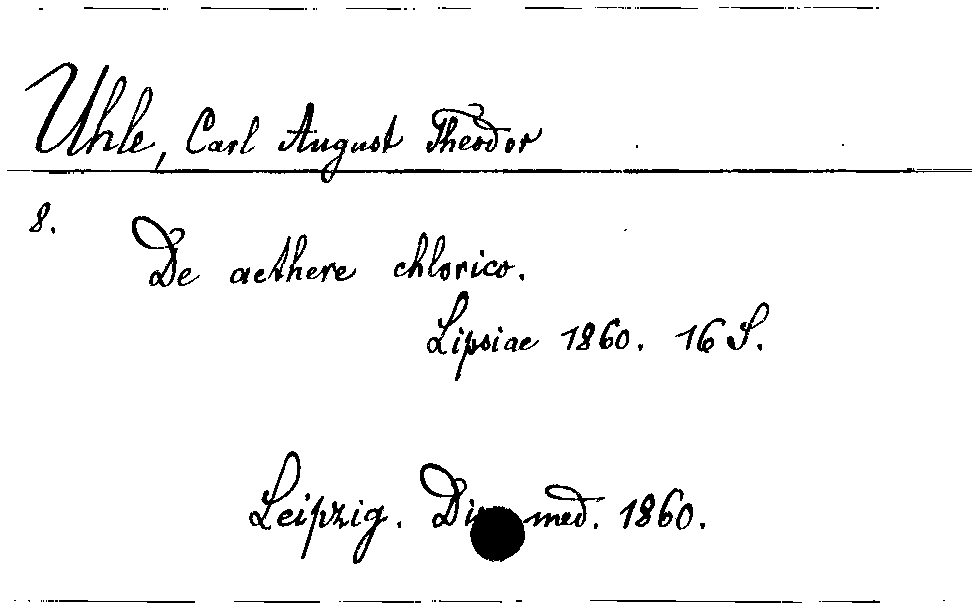 Uhle, Carl August Theodor
8.
De aethere chlorico.
Lipsiae 1860. 16 S.
Leipzig. med. 1860.